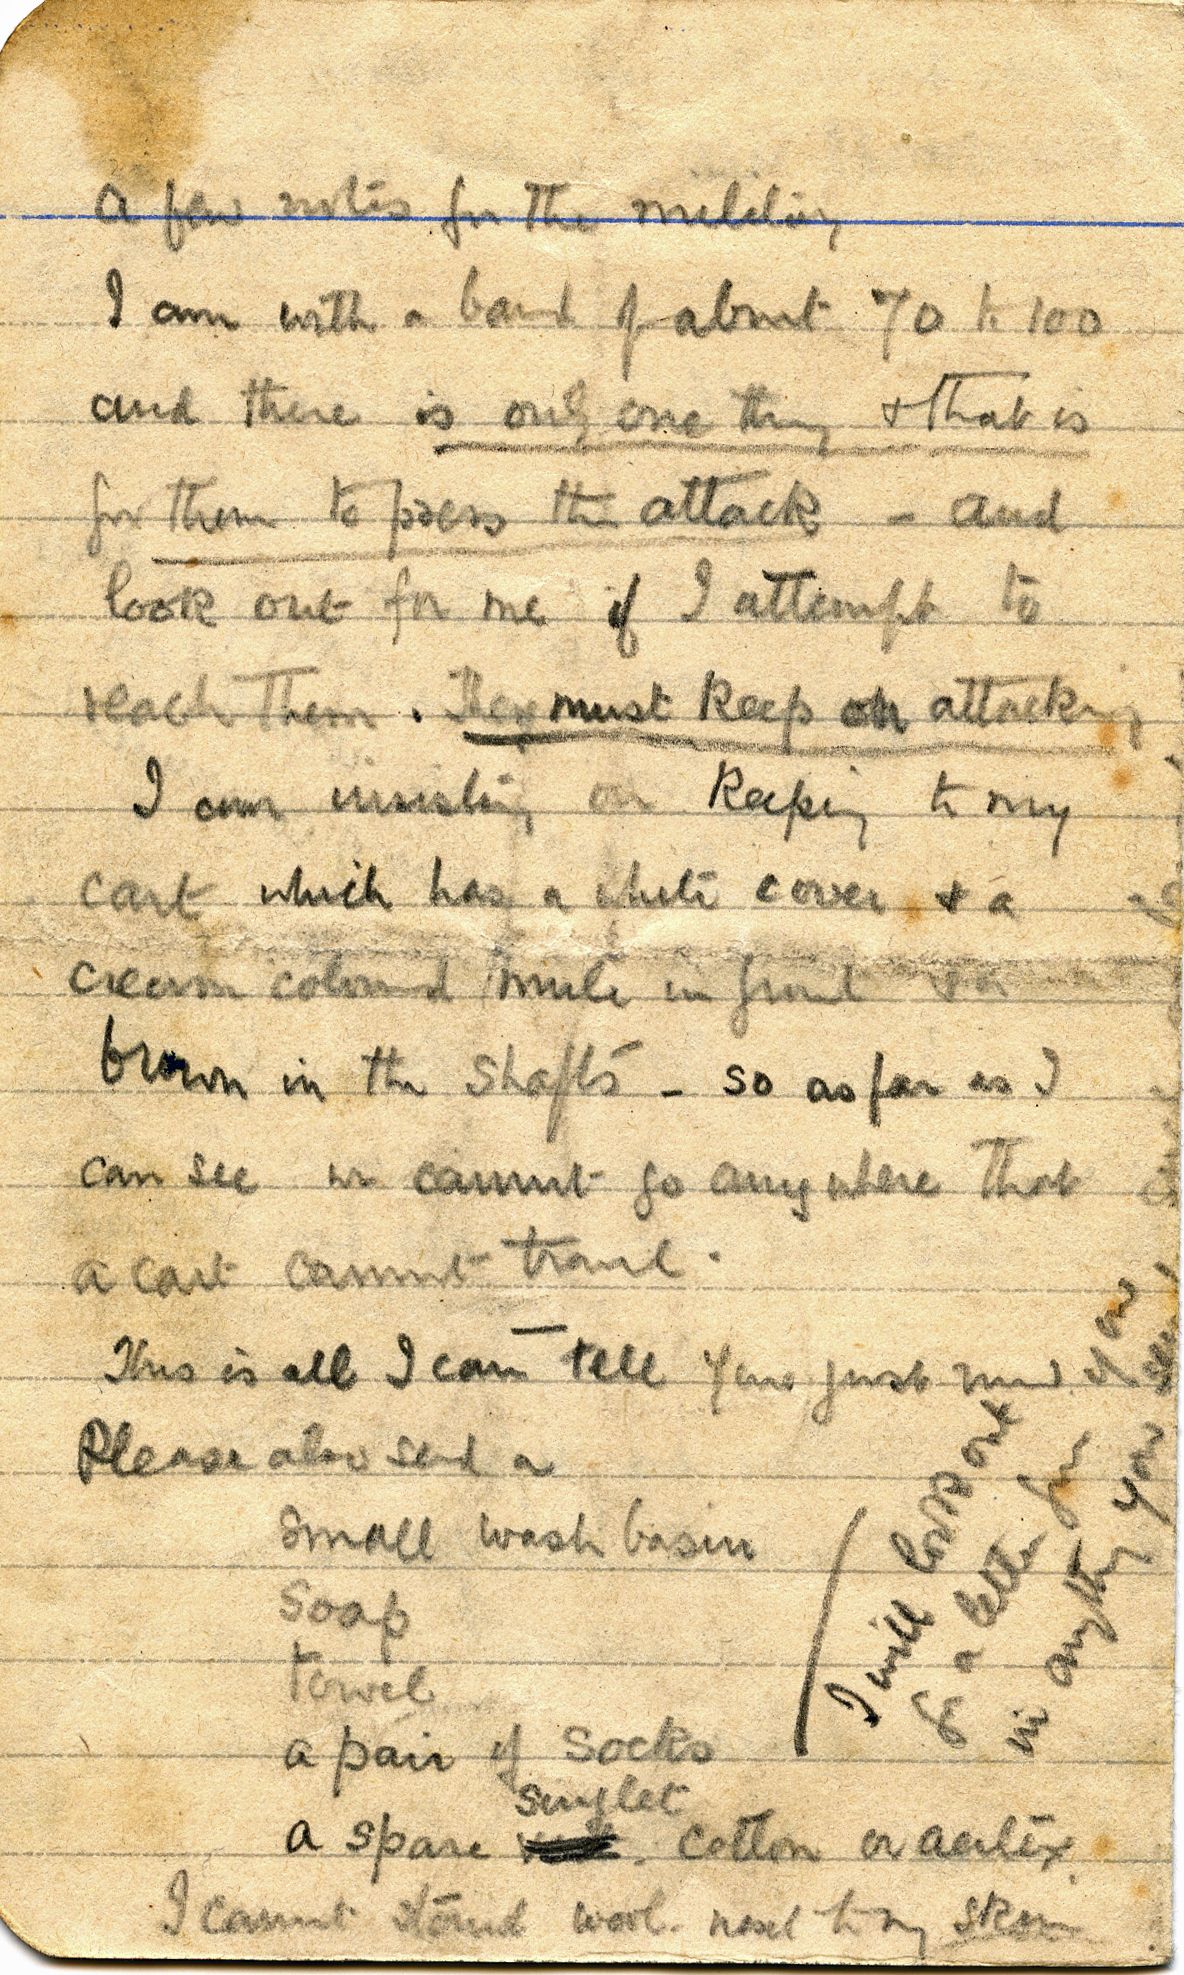 A few notes for the military
I am with a band of about 70 to 100
and there is only one thing & that is
for them to press the attack - and
look out for me if I attempt to
reach them. They must keep on attacking
I am insisting on keeping to my
cart which has a white cover & a
cream coloured mule in front & a
brown in the shafts - so as far as I
can see we cannot go anywhere that
a cart cannot travel.
This is all I can tell you just now.
Please also send a
small wash basin
soap
towel
a pair of socks
singlet
a spare cotton or aertex.
I cannot stand wool next to my skin
I will look out
for a letter for
in anything you